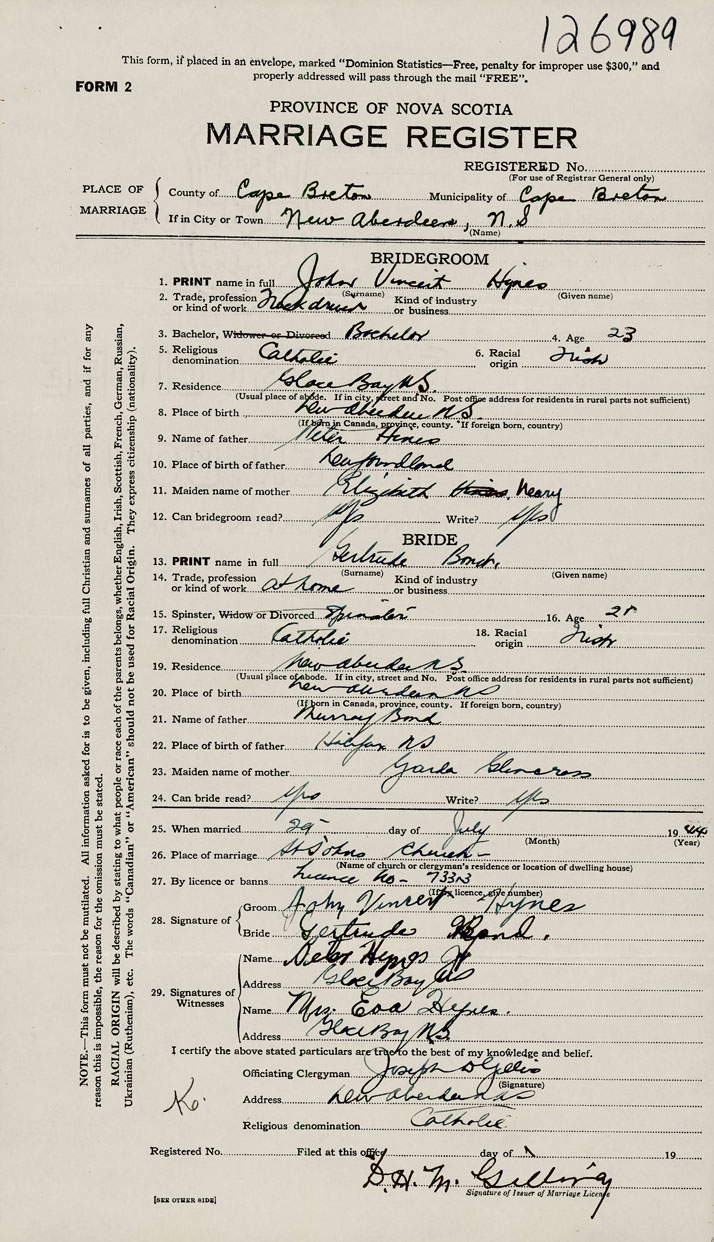 126989
This form, if placed in an envelope, marked "Dominion Statistics—Free, penalty for improper use $300," and
properly addressed will pass through the mail "FREE".
FORM 2
PROVINCE OF NOVA SCOTIA
MARRIAGE REGISTER
REGISTERED No.
(For use of Registrar General only)
PLACE OF MARRIAGE
County of Cape Breton Municipality of Cape Breton
If in City or Town New Aberdeen, N.S
(Name)
BRIDEGROOM
1. PRINT name in full John Vincent Hynes
(Surname) (Given name)
2. Trade, profession or kind of work Kind of industry or business
3. Bachelor, Widower or Divorced Bachelor 4. Age 23
5. Religious denomination Catholic 6. Racial origin Irish
7. Residence Glace Bay N.S.
(Usual place of abode. If in city, street and No. Post office address for residents in rural parts not sufficient)
8. Place of birth New Aberdeen N.S.
(If born in Canada, province, county. If foreign born, country)
9. Name of father Peter Hynes
10. Place of birth of father Newfoundland
11. Maiden name of mother Elizabeth Neary
12. Can bridegroom read? Yes Write? Yes
BRIDE
13. PRINT name in full Gertrude Bond.
(Surname) (Given name)
14. Trade, profession or kind of work at home Kind of industry or business
15. Spinster, Widow or Divorced Spinster 16. Age
17. Religious denomination Catholic 18. Racial origin Irish
19. Residence New Aberdeen N.S.
(Usual place of abode. If in city, street and No. Post office address for residents in rural parts not sufficient)
20. Place of birth New Aberdeen NS
(If born in Canada, province, county. If foreign born, country)
21. Name of father Murray Bond
22. Place of birth of father Halifax NS
23. Maiden name of mother Glencross
24. Can bride read? Yes Write? Yes
25. When married day of July 1944
(Month) (Year)
26. Place of marriage St Johns Church
(Name of church or clergyman's residence or location of dwelling house)
27. By licence or banns Licence No-
(If by licence, give number)
28. Signature of
Groom John Vincent Hynes
Bride Gertrude Bond.
29. Signatures of Witnesses
Name Peter Hynes Jr
Address Glace Bay NS
Name Mrs. Eva Hynes.
Address Glace Bay NS
I certify the above stated particulars are true to the best of my knowledge and belief.
Officiating Clergyman Joseph D Gillis
(Signature)
Address New Aberdeen NS
Religious denomination Catholic
Registered No. Filed at this office day of 19
D. H. M.
Signature of Issuer of Marriage License
[SEE OTHER SIDE]
NOTE.—This form must not be mutilated. All information asked for is to be given, including full Christian and surnames of all parties, and if for any
reason this is impossible, the reason for the omission must be stated.
RACIAL ORIGIN will be described by stating to what people or race each of the parents belongs, whether English, Irish, Scottish, French, German, Russian,
Ukrainian (Ruthenian), etc. The words "Canadian" or "American" should not be used for Racial Origin. They express citizenship (nationality).